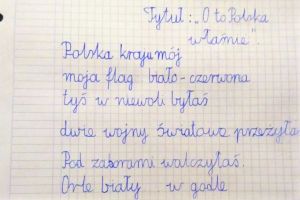 Tytuł: „O to Polska
właśnie".
Polska kraju mój
moja flag biało-czerwona
tyś w niewoli byłaś
dwie wojny światowe przeżyła
Pod zaborami walczyłaś.
Orle biały w godle